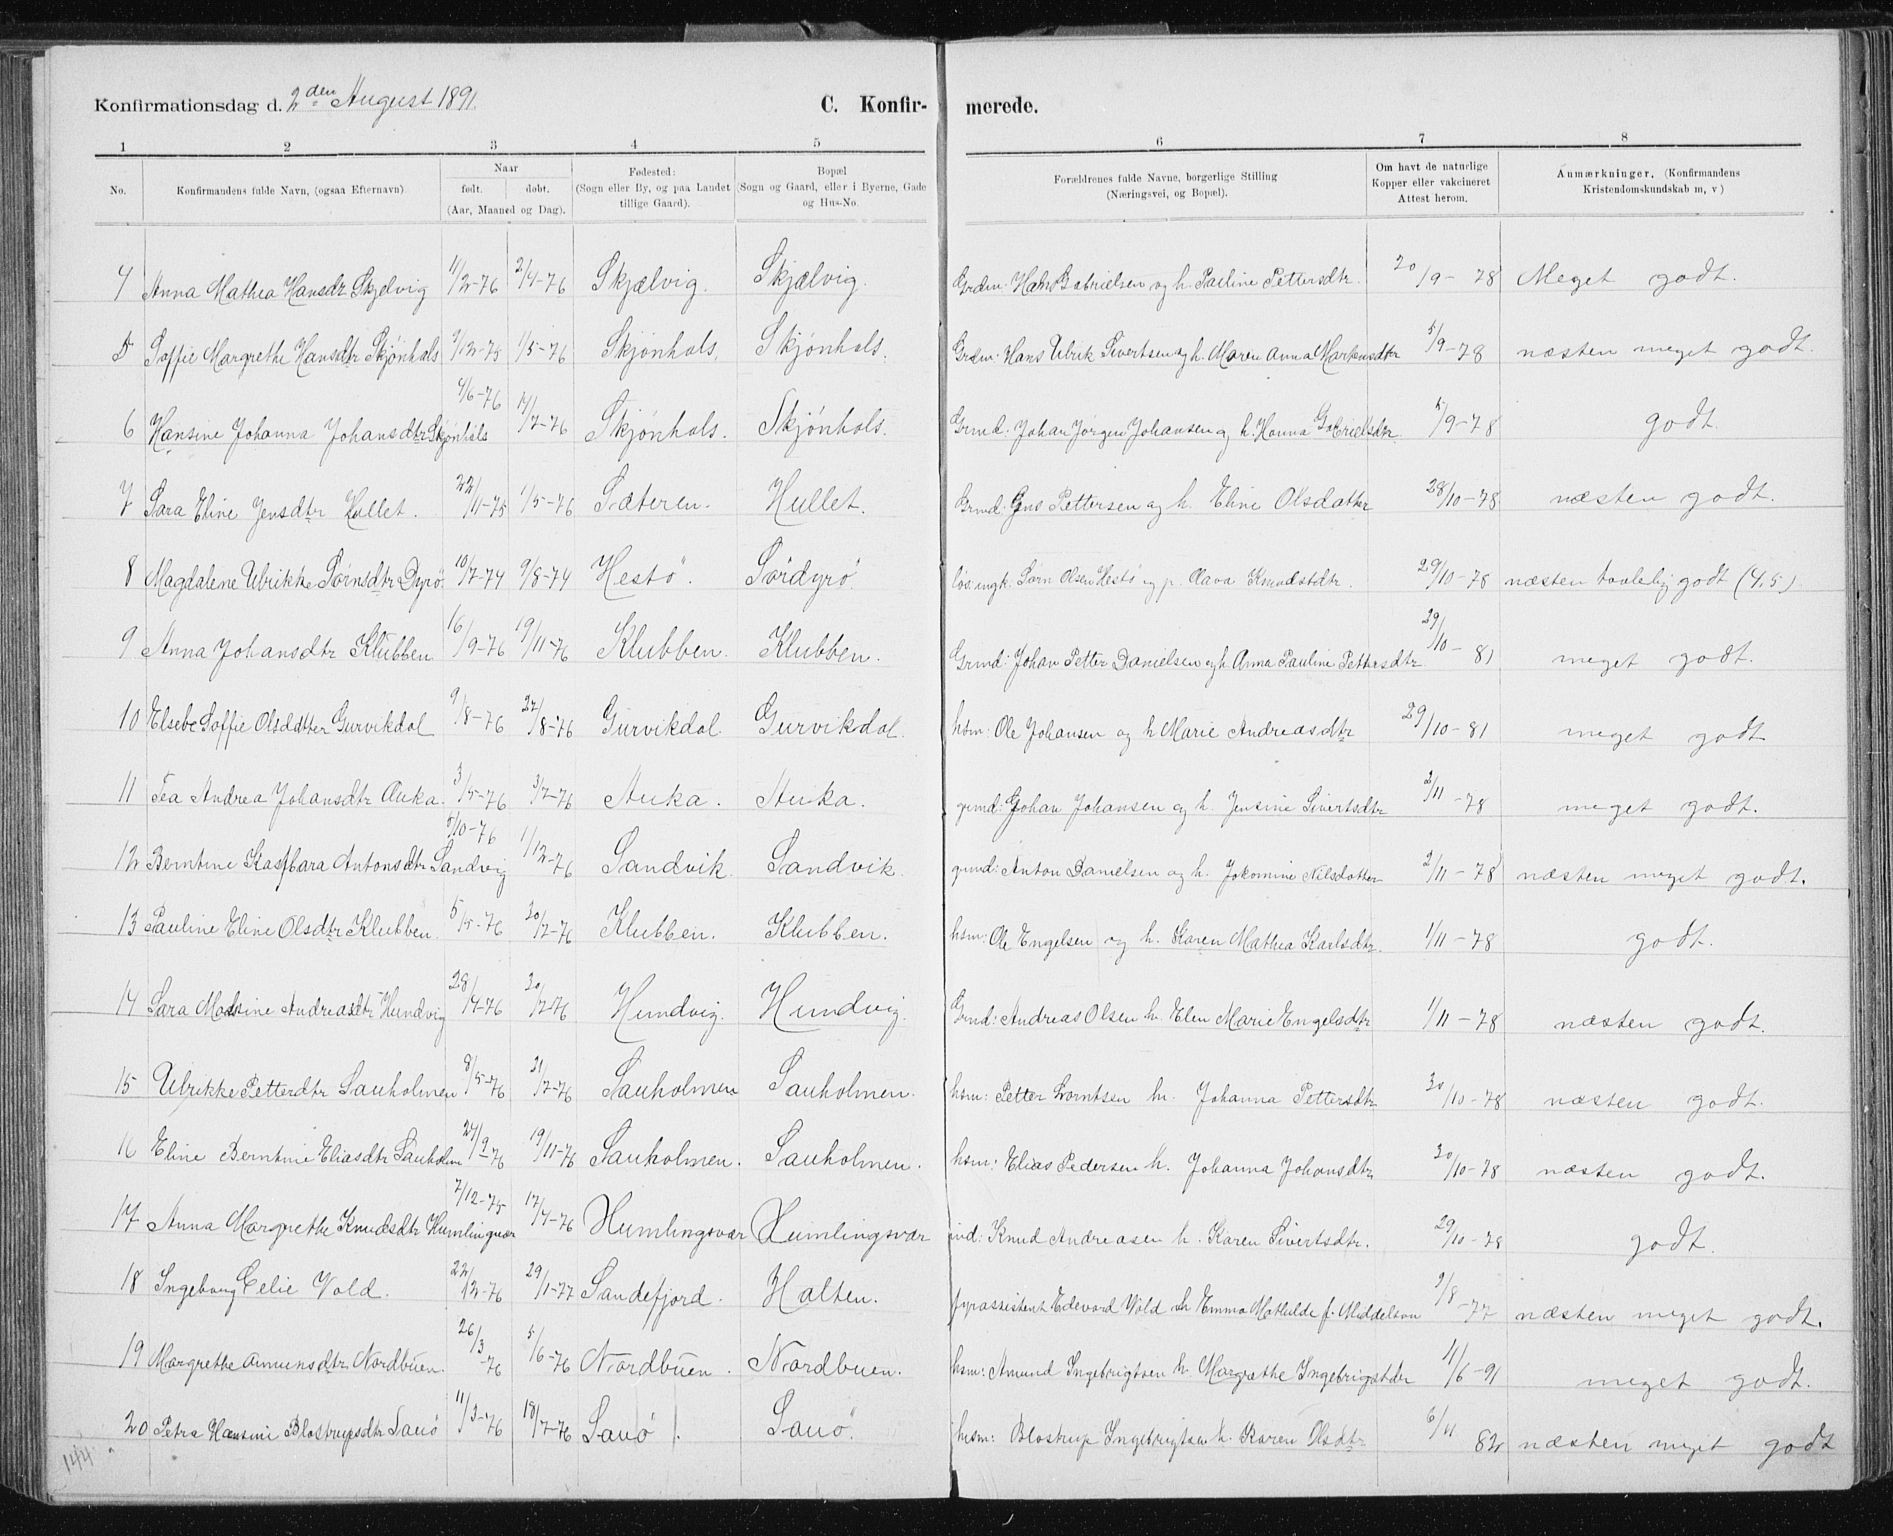 Konfirmationsdag d. 2den August 1891. C. Konfir- merede.
1 2 3 4 5 6 7 8
No. Konfirmandens fulde Navn, (ogsaa Efternavn) Naar født. døbt. (Aar, Maaned og Dag). Fødested: (Sogn eller By, og paa Landet tillige Gaard). Bopæl (Sogn og Gaard, eller i Byerne, Gade og Hus-No. Forældrenes fulde Navne, borgerlige Stilling (Næringsvei, og Bopæl). Om havt de naturlige Kopper eller vakcineret Attest herom. Anmærkninger. (Konfirmandens Kristendomskundskab m, v)
4 Anna Mathea Hansdtr Skjelvig 11/2-76 2/4-76 Skjælvig. Skjælvig. Grdm: Hans Gabrielsen og h. Pauline Pettersdtr. 20/9-78 Meget godt.
5 Soffie Margrethe Hansdtr Skjønhals 9/12-75 1/5-76 Skjønhals. Skjønhals. Grdm: Hans Ulrik Sivertsen og h. Maren Anna Markusdtr 5/9-78 næsten meget godt.
6 Hansine Johanna Johansdtr Skjønhals 4/6-76 17/7-76 Skjønhals. Skjønhals. Grmd. Johan Jørgen Johansen og h. Hanna Gabrielsdtr. 5/9-78 godt.
7 Sara Eline Jensdtr Hullet. 22/11-75 1/5-76 Sæteren. Hullet. Grmd. Jens Pettersen og h. Eline Olsdatter 28/10-78 næsten godt.
8 Magdalene Ulrikke Sørnsdtr Dyrø. 10/7-74 9/8-74 Hestø. Sørdyrø. løs. ungk. Sørn Olsen Hestø og p. Olava Knudsdtr. 29/10-78 næsten taalelig godt (4,5)
9 Anna Johansdtr Klubben 16/9-76 19/11-76 Klubben. Klubben. Grmd: Johan Petter Danielsen og h. Anna Pauline Pettersdtr 29/10-81 meget godt.
10 Elsebe Soffie Olsdatter Gurvikdal 9/8-76 27/8-76 Gurvikdal. Gurvikdal. hsm: Ole Johansen og h Marie Andreasdtr 29/10-81 meget godt
11 Tea Andrea Johansdtr Auka. 3/5-76 3/7-76 Auka. Auka. grmd: Johan Johansen og h. Jensine Sivertsdtr 2/11-78 meget godt.
12 Berntine Kasbara Antonsdtr Sandvig 5/10-76 1/12-76 Sandvik. Sandvik. grmd: Anton Danielsen og h. Jokomine Nilsdatter 2/11-78 næsten meget godt.
13 Pauline Eline Olsdtr Klubben. 5/5-76 20/7-76 Klubben. Klubben. hsm: Ole Engelsen og h. Karen Mathea Karlsdtr. 1/11-78 godt.
14 Sara Madsine Andreasdtr Hundvig 28/4-76 20/7-76 Hundvig. Hundvig. Grmd: Andreas Olsen h. Elen Marie Engelsdtr 1/11-78 næsten godt.
15 Ulrikke Petterdtr Sauholmen 8/5-76 21/7-76 Sauholmen Sauholmen. hsm: Petter Lorntsen h. Johanna Pettersdtr 30/10-78 næsten godt.
16 Eline Berntine Eliasdtr Sauholm 27/9-76 19/11-76 Sauholmen. Sauholmen. hsm: Elias Pedersen h. Johanna Johansdtr 20/10-78 næsten godt.
17 Anna Margrethe Knudsdtr Humlingvær 7/12-75 17/4-76 Humlingsvær Humlingsvær ind: Knud Andreasen h. Karen Sivertsdtr. 29/10-78 godt.
18 Ingeborg Celie Vold. 22/12-76 29/1-77 Sandefjord. Halten. fyrassistent Edevard Vold h Emma Mathilde f. Middelson 9/8-77 næsten meget godt.
19 Margrethe Amunsdtr Nordbuen. 26/3-76 5/6-76 Nordbuen. Nordbuen. hsm: Amund Ingebrigtsen h. Margrethe Ingebrigtsdtr 11/6-91 meget godt.
20 Petra Hansine Blostrupsdtr Sauø 11/3-76 18/7-76 Sauø. Sauø. hsm: Blostrup Ingebrigtsen h. Karen Olsdtr 6/11 82 næsten meget godt
144